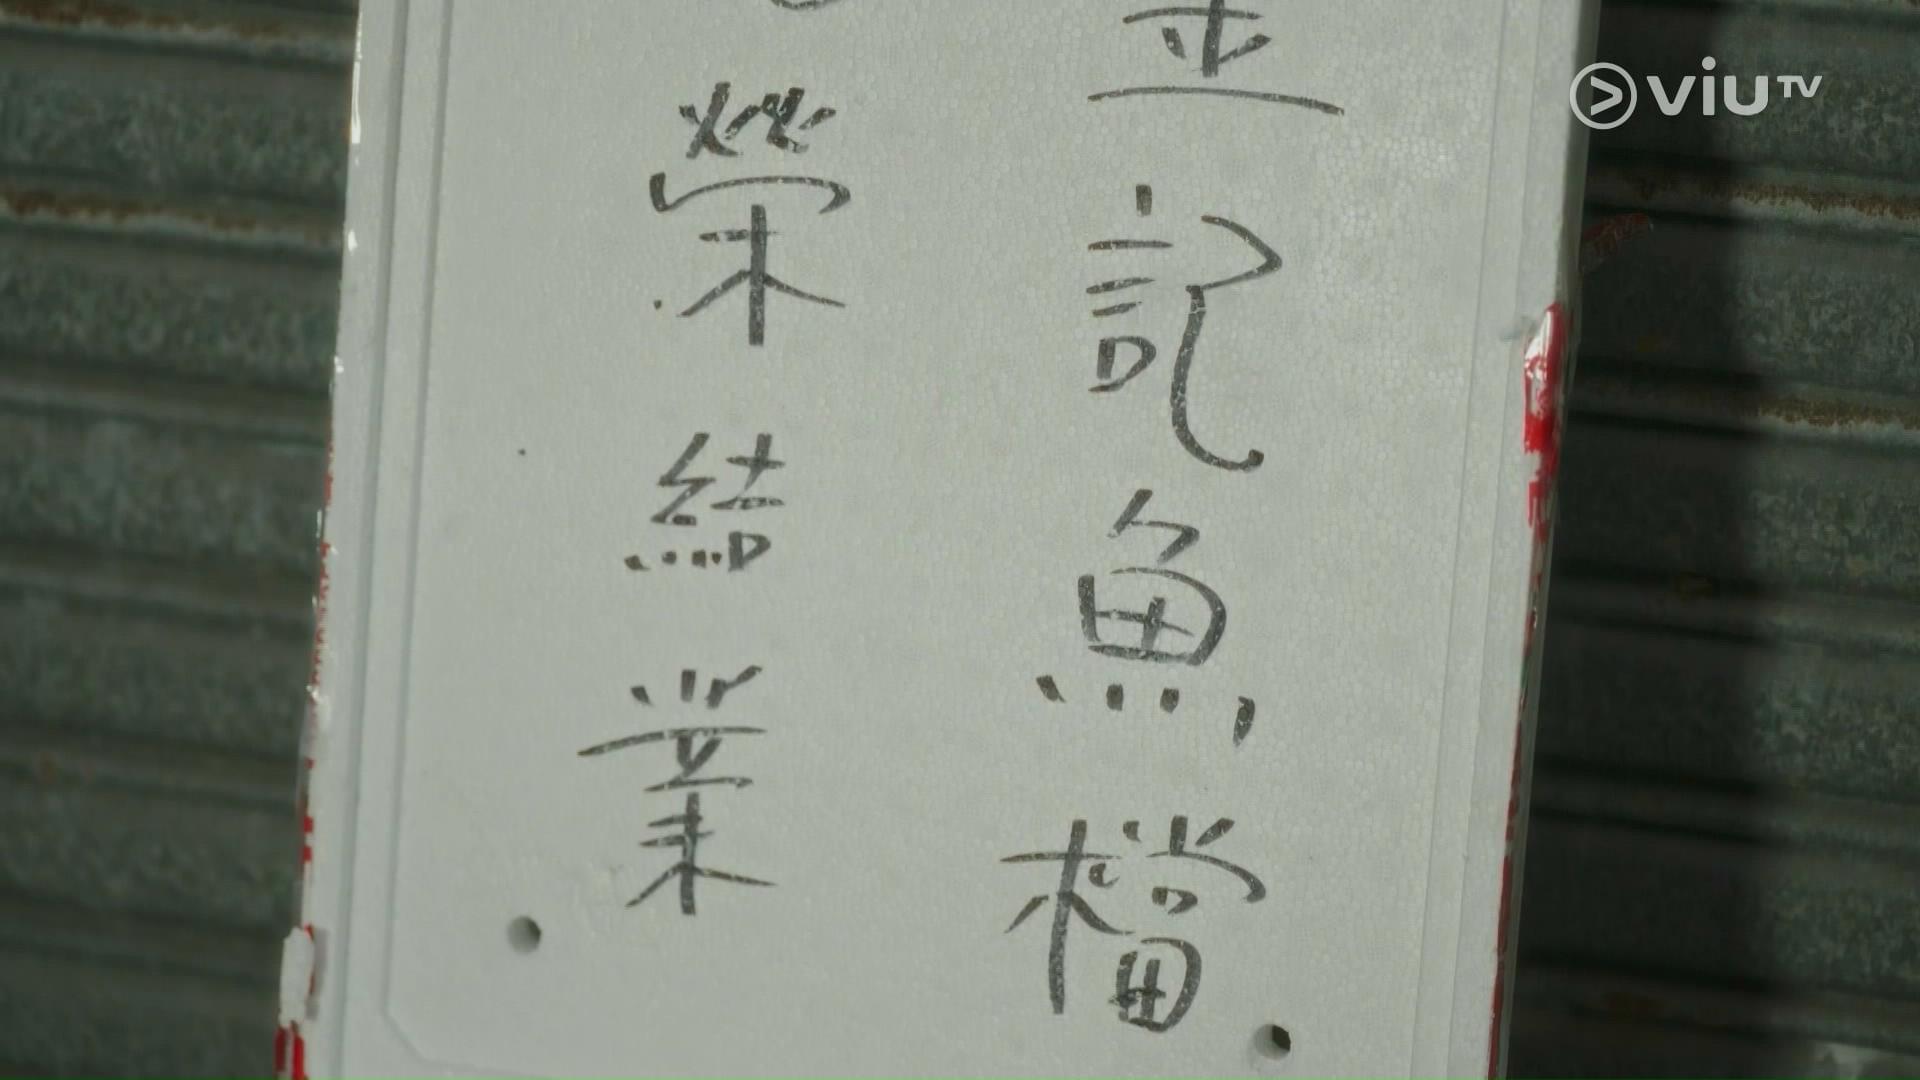 金記魚檔
榮結業
viuTV